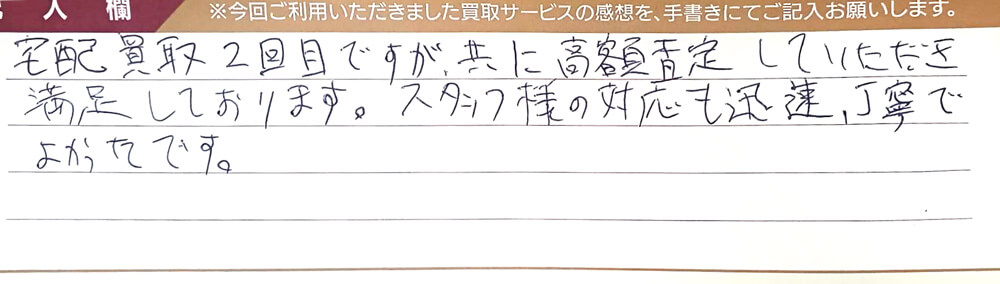 人欄
※今回ご利用いただきました買取サービスの感想を、手書きにてご記入お願いします。
宅配買取2回目ですが、共に高額査定していただき
満足しております。スタッフ様の対応も迅速、丁寧で
よかったです。